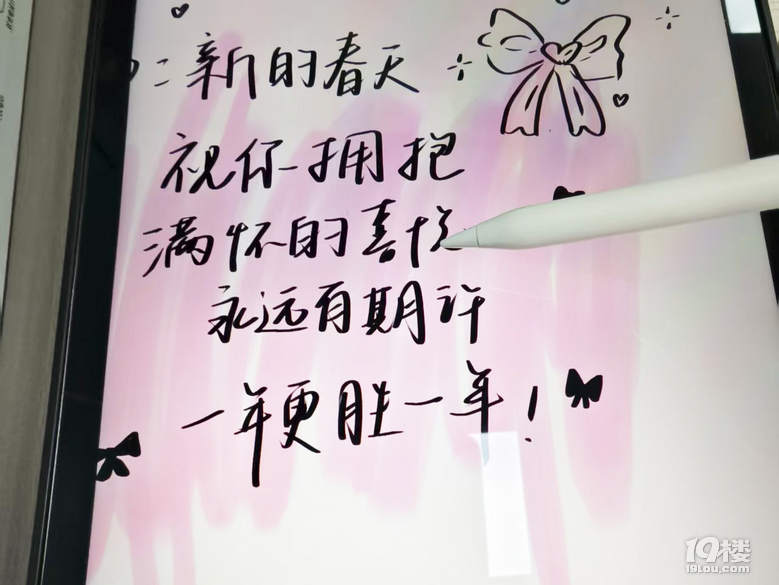 ：新的春天
祝你拥抱
满怀的喜悦
永远有期许
一年更胜一年！
19楼
19lou.com